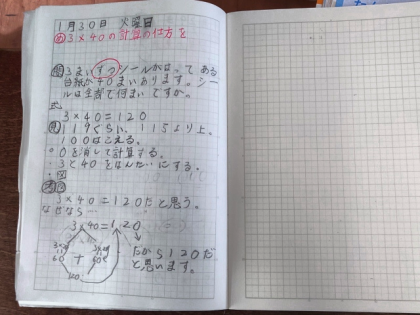 1月30日 火曜日
め 3×40の計算の仕方を
問 3まいずつシールがはってある
台紙が40まいあります。シー
ルは全部で何まいですか。
式
3×40=120
見 119ぐらい、115より上。
100はこえる。
0を消して計算する。
3と40をなんたいにする。
・図
3×40=120だと思う。
なぜなら…
3×40=120
だから120だ
と思います。
60 + 60
120